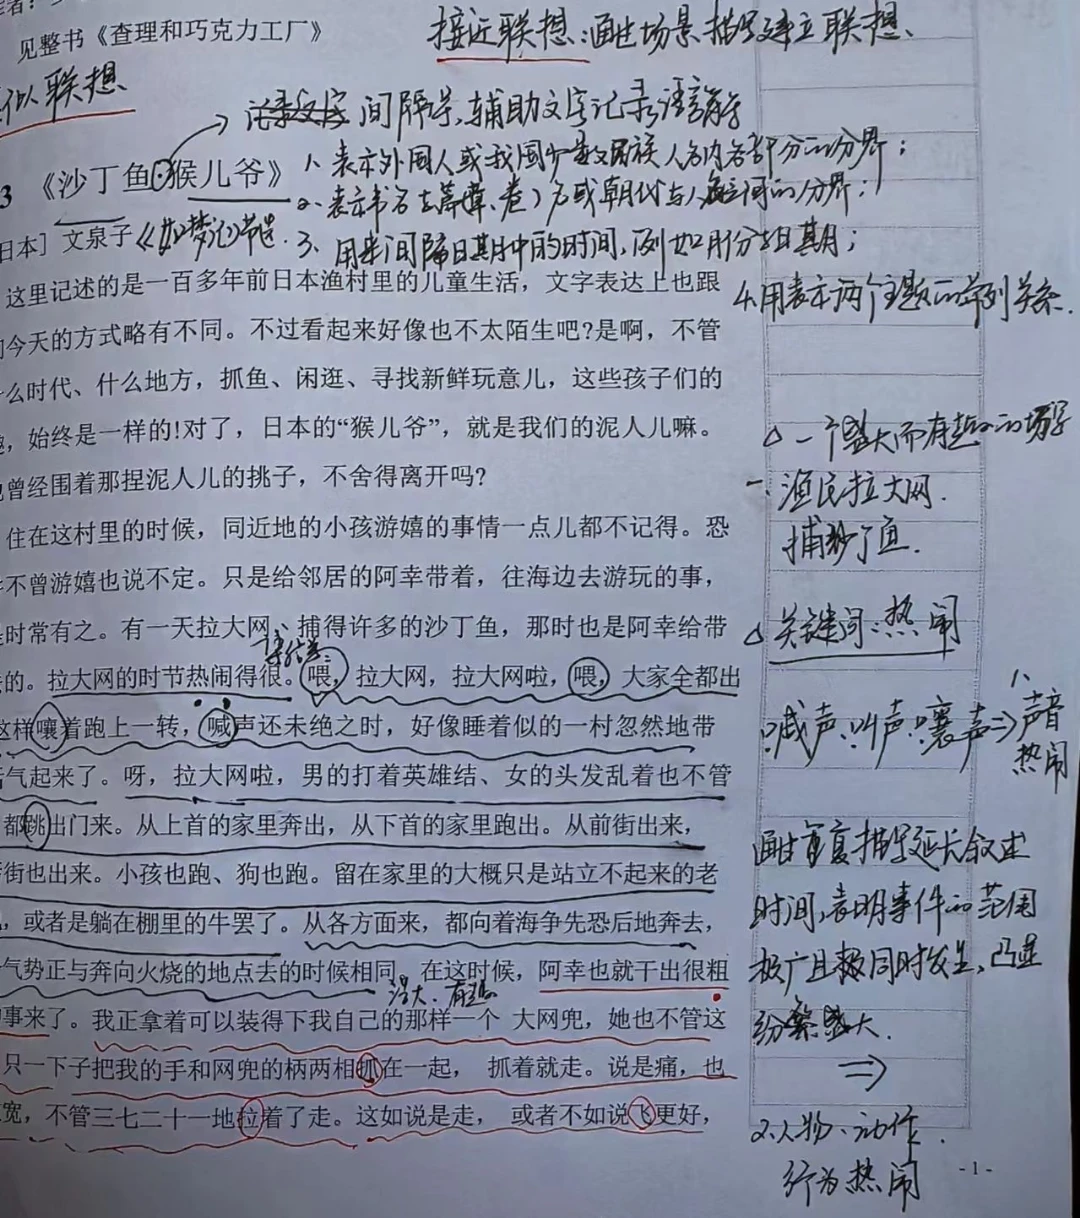 见整书《查理和巧克力工厂》
接近联想:画出场景描写建立联想、
似联想
间隔号,辅助文字记录语言符号
3 《沙丁鱼·猴儿爷》
1、表示外国人或我国少数民族人名内各部分的分界;
2、表示书名与篇(章、卷)名或朝代与人之间的分界;
日本] 文泉子《如梦记》节选.
3、用来间隔日期中的时间,例如月份与日期;
4.用表示两个主题的并列关系.
这里记述的是一百多年前日本渔村里的儿童生活,文字表达上也跟
今天的方式略有不同。不过看起来好像也不太陌生吧?是啊,不管
么时代、什么地方,抓鱼、闲逛、寻找新鲜玩意儿,这些孩子们的
,始终是一样的!对了,日本的“猴儿爷”,就是我们的泥人儿嘛。
△一个盛大而有趣的场景
曾经围着那捏泥人儿的挑子,不舍得离开吗?
一、渔民拉大网.
捕沙丁鱼.
住在这村里的时候,同近地的小孩游嬉的事情一点儿都不记得。恐
不曾游嬉也说不定。只是给邻居的阿幸带着,往海边去游玩的事,
是时常有之。有一天拉大网、捕得许多的沙丁鱼,那时也是阿幸给带
△关键词:热闹
的。拉大网的时节热闹得很。喂,拉大网,拉大网啦,喂,大家全都出
这样嚷着跑上一转,喊声还未绝之时,好像睡着似的一村忽然地带
喊声、叫声、嚷声⇒1、声音
热闹
气起来了。呀,拉大网啦,男的打着英雄结、女的头发乱着也不管
都跳出门来。从上首的家里奔出,从下首的家里跑出。从前街出来,
街也出来。小孩也跑、狗也跑。留在家里的大概只是站立不起来的老
画出重复描写延长叙述
时间,表明事件的范围
极广且极同时发生,凸显
纷繁盛大.
⇒
,或者是躺在棚里的牛罢了。从各方面来,都向着海争先恐后地奔去,
气势正与奔向火烧的地点去的时候相同。在这时候,阿幸也就干出很粗
事来了。我正拿着可以装得下我自己的那样一个 大网兜,她也不管这
只一下子把我的手和网兜的柄两相抓在一起, 抓着就走。说是痛,也
宽,不管三七二十一地拉着了走。这如说是走, 或者不如说飞更好,
2.人物、动作.
行为热闹
- 1 -